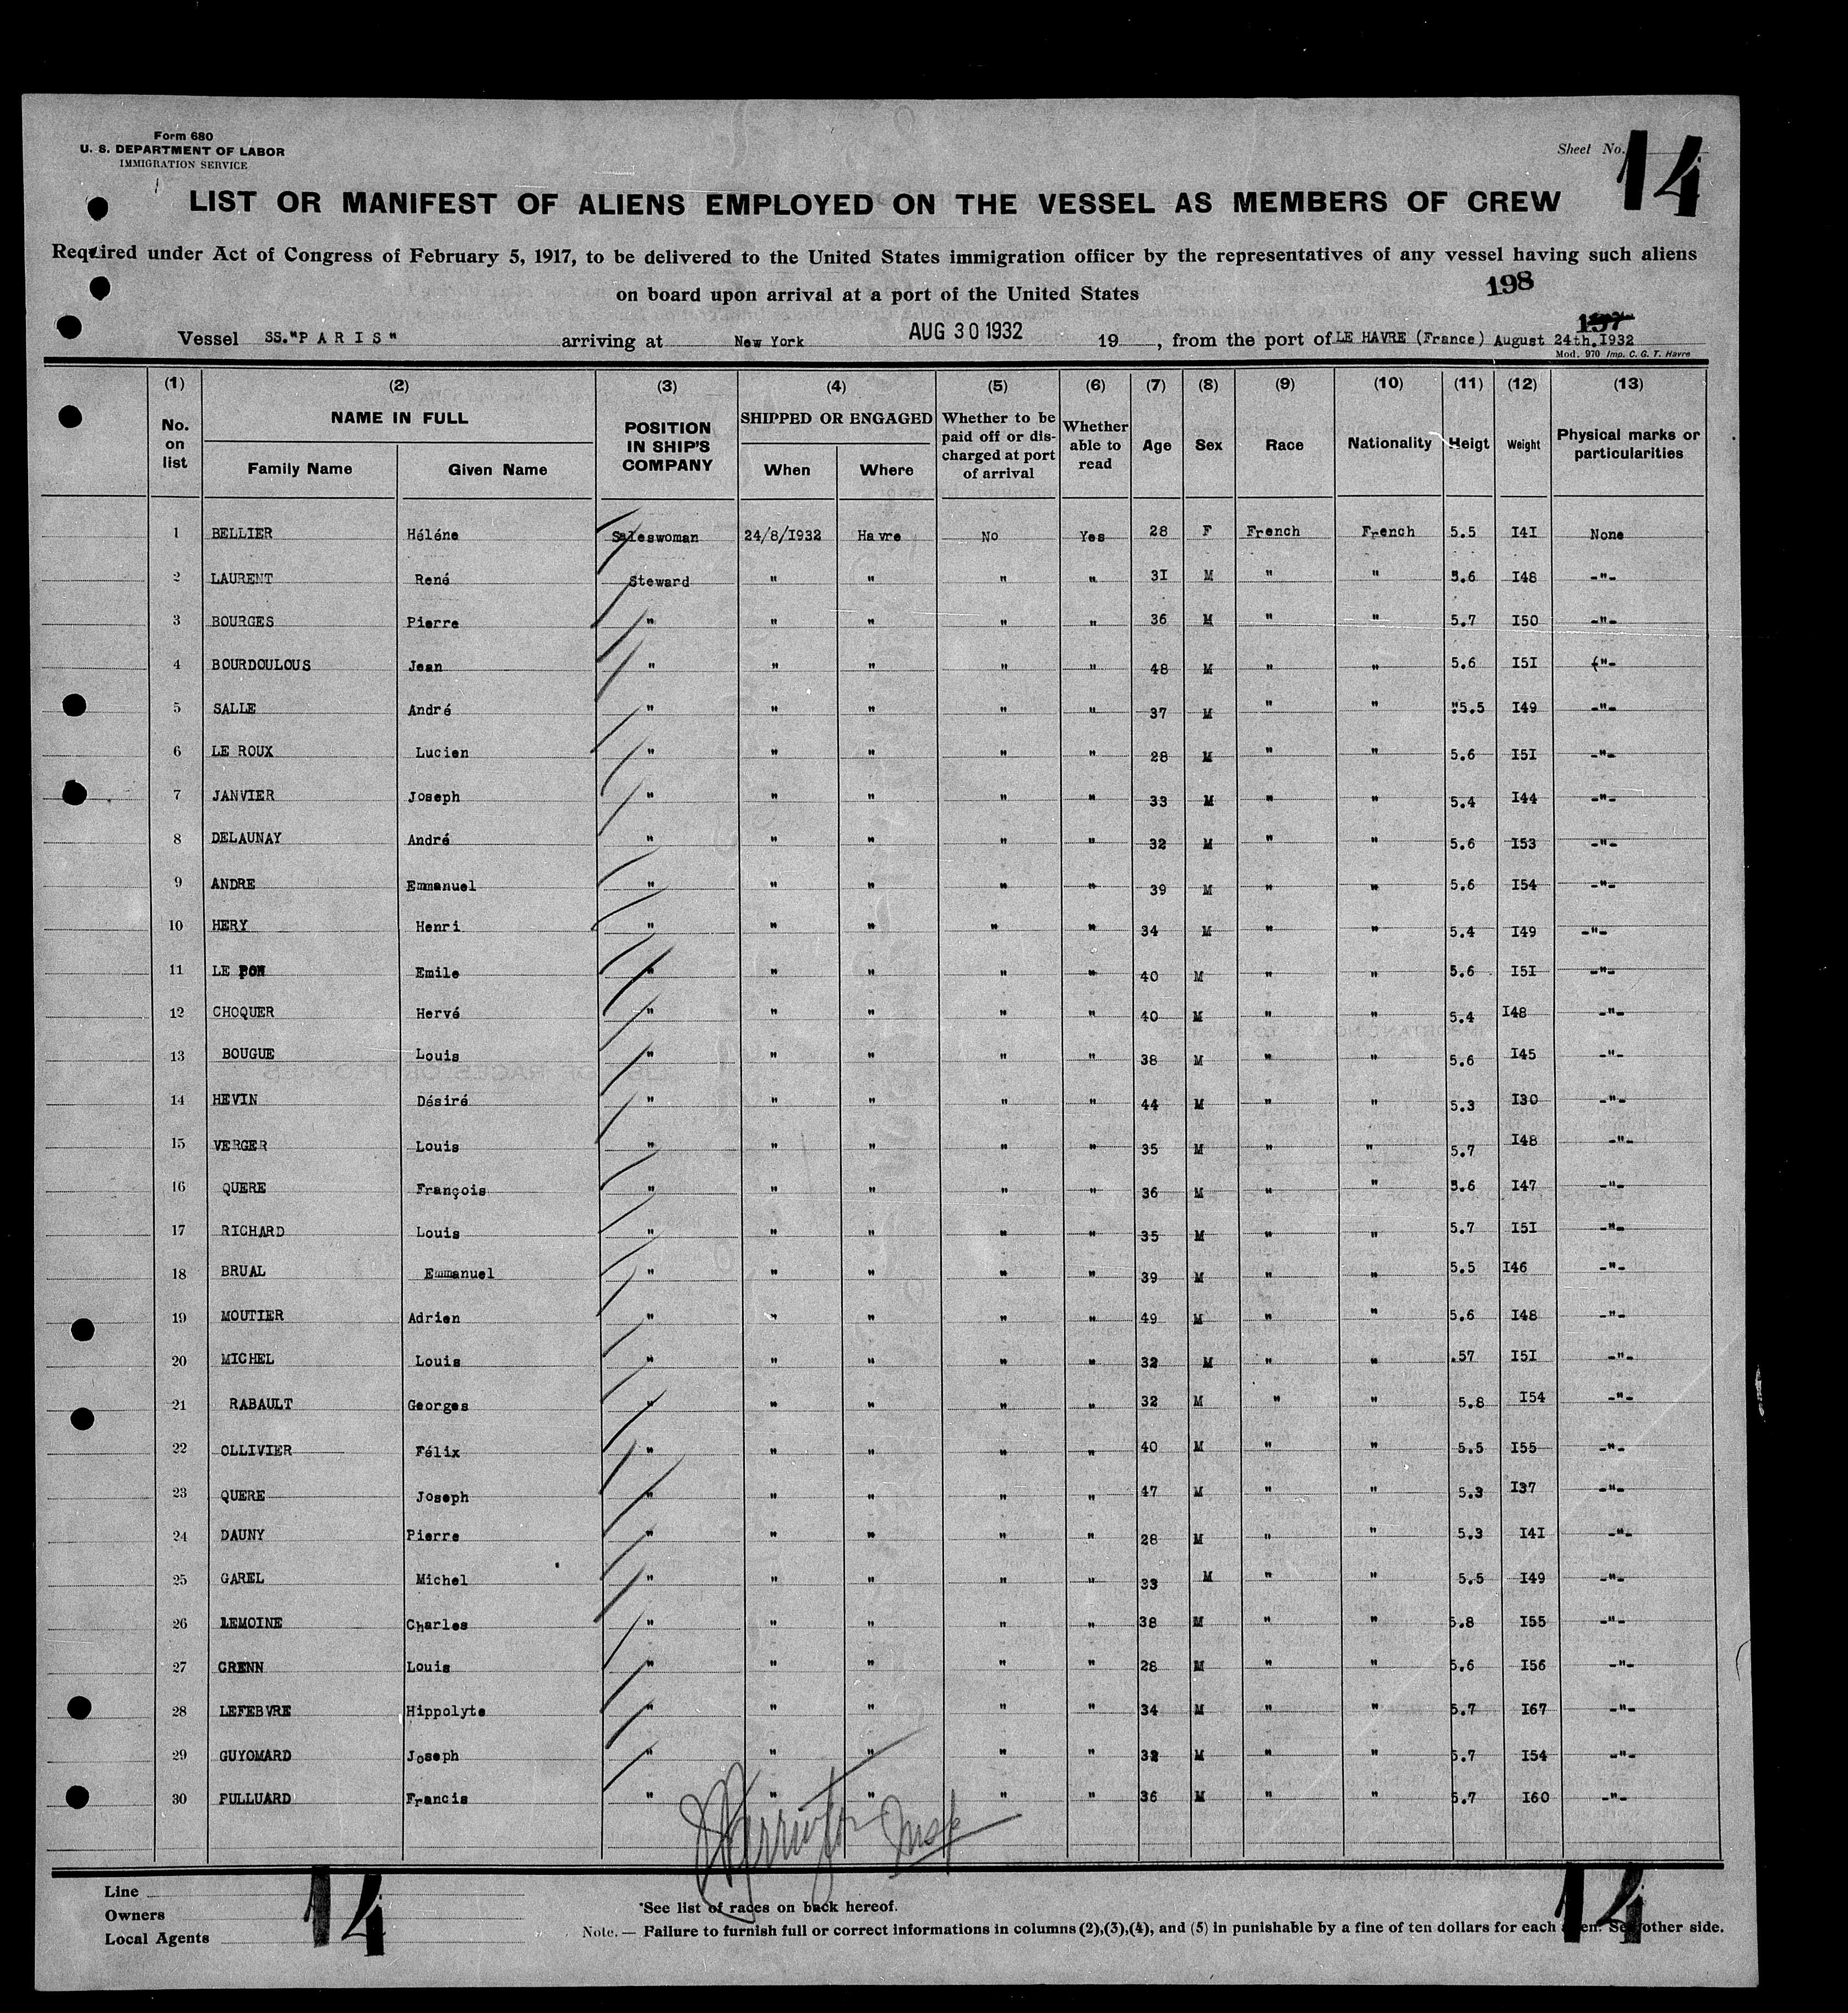 Form 680
U. S. DEPARTMENT OF LABOR
IMMIGRATION SERVICE
Sheet No. 14
LIST OR MANIFEST OF ALIENS EMPLOYED ON THE VESSEL AS MEMBERS OF CREW
Required under Act of Congress of February 5, 1917, to be delivered to the United States immigration officer by the representatives of any vessel having such aliens
on board upon arrival at a port of the United States
198
197
Vessel SS."P A R I S" arriving at New York AUG 30 1932 19 , from the port of LE HAVRE (France) August 24th.I932
Mod. 970 Imp. C. G. T. Havre
(1) (2) (3) (4) (5) (6) (7) (8) (9) (10) (11) (12) (13)
No. on list NAME IN FULL Family Name Given Name POSITION IN SHIP'S COMPANY SHIPPED OR ENGAGED When Where Whether to be paid off or discharged at port of arrival Whether able to read Age Sex Race Nationality Heigt Weight Physical marks or particularities
1 BELLIER Héléne Saleswoman 24/8/I932 Havre No Yes 28 F French French 5.5 I4I None
2 LAURENT René Steward " " " " 3I M " " 5.6 I48 -"-
3 BOURGES Pierre " " " " " 36 M " " 5.7 I50 -"-
4 BOURDOULOUS Jean " " " " " 48 M " " 5.6 I5I ("-
5 SALLE André " " " " " 37 M " " "5.5 I49 -"-
6 LE ROUX Lucien " " " " " 28 M " " 5.6 I5I -"-
7 JANVIER Joseph " " " " " 33 M " " 5.4 I44 -"-
8 DELAUNAY André " " " " " 32 M " " 5.6 I53 -"-
9 ANDRE Emmanuel " " " " " 39 M " " 5.6 I54 -"-
10 HERY Henri " " " " " 34 M " " 5.4 I49 -"-
11 LE Emile " " " " " 40 M " " 5.6 I5I -"-
12 CHOQUER Hervé " " " " " 40 M " " 5.4 I48 -"-
13 BOUGUE Louis " " " " " 38 M " " 5.6 I45 -"-
14 HEVIN Désiré " " " " " 44 M " " 5.3 I30 -"-
15 VERGER Louis " " " " " 35 M " " 5.7 I48 -"-
16 QUERE François " " " " " 36 M " " 5.6 I47 -"-
17 RICHARD Louis " " " " " 35 M " " 5.7 I5I -"-
18 BRUAL Emmanuel " " " " " 39 M " " 5.5 I46 -"-
19 MOUTIER Adrien " " " " " 49 M " " 5.6 I48 -"-
20 MICHEL Louis " " " " " 32 M " " .57 I5I -"-
21 RABAULT Georges " " " " " 32 M " " 5.8 I54 -"-
22 OLLIVIER Félix " " " " " 40 M " " 5.5 I55 -"-
23 QUERE Joseph " " " " " 47 M " " 5.3 I37 -"-
24 DAUNY Pierre " " " " " 28 M " " 5.3 I4I -"-
25 GAREL Michel " " " " " 33 M " " 5.5 I49 -"-
26 LEMOINE Charles " " " " " 38 M " " 5.8 I55 -"-
27 CRENN Louis " " " " " 28 M " " 5.6 I56 -"-
28 LEFEBVRE Hippolyte " " " " " 34 M " " 5.7 I67 -"-
29 GUYOMARD Joseph " " " " " 32 M " " 5.7 I54 -"-
30 PULLUARD Francis " " " " " 36 M " " 5.7 I60 -"-
Insp
Line
Owners
Local Agents
14
*See list of races on back hereof.
Note. — Failure to furnish full or correct informations in columns (2),(3),(4), and (5) in punishable by a fine of ten dollars for each alien. See other side.
14